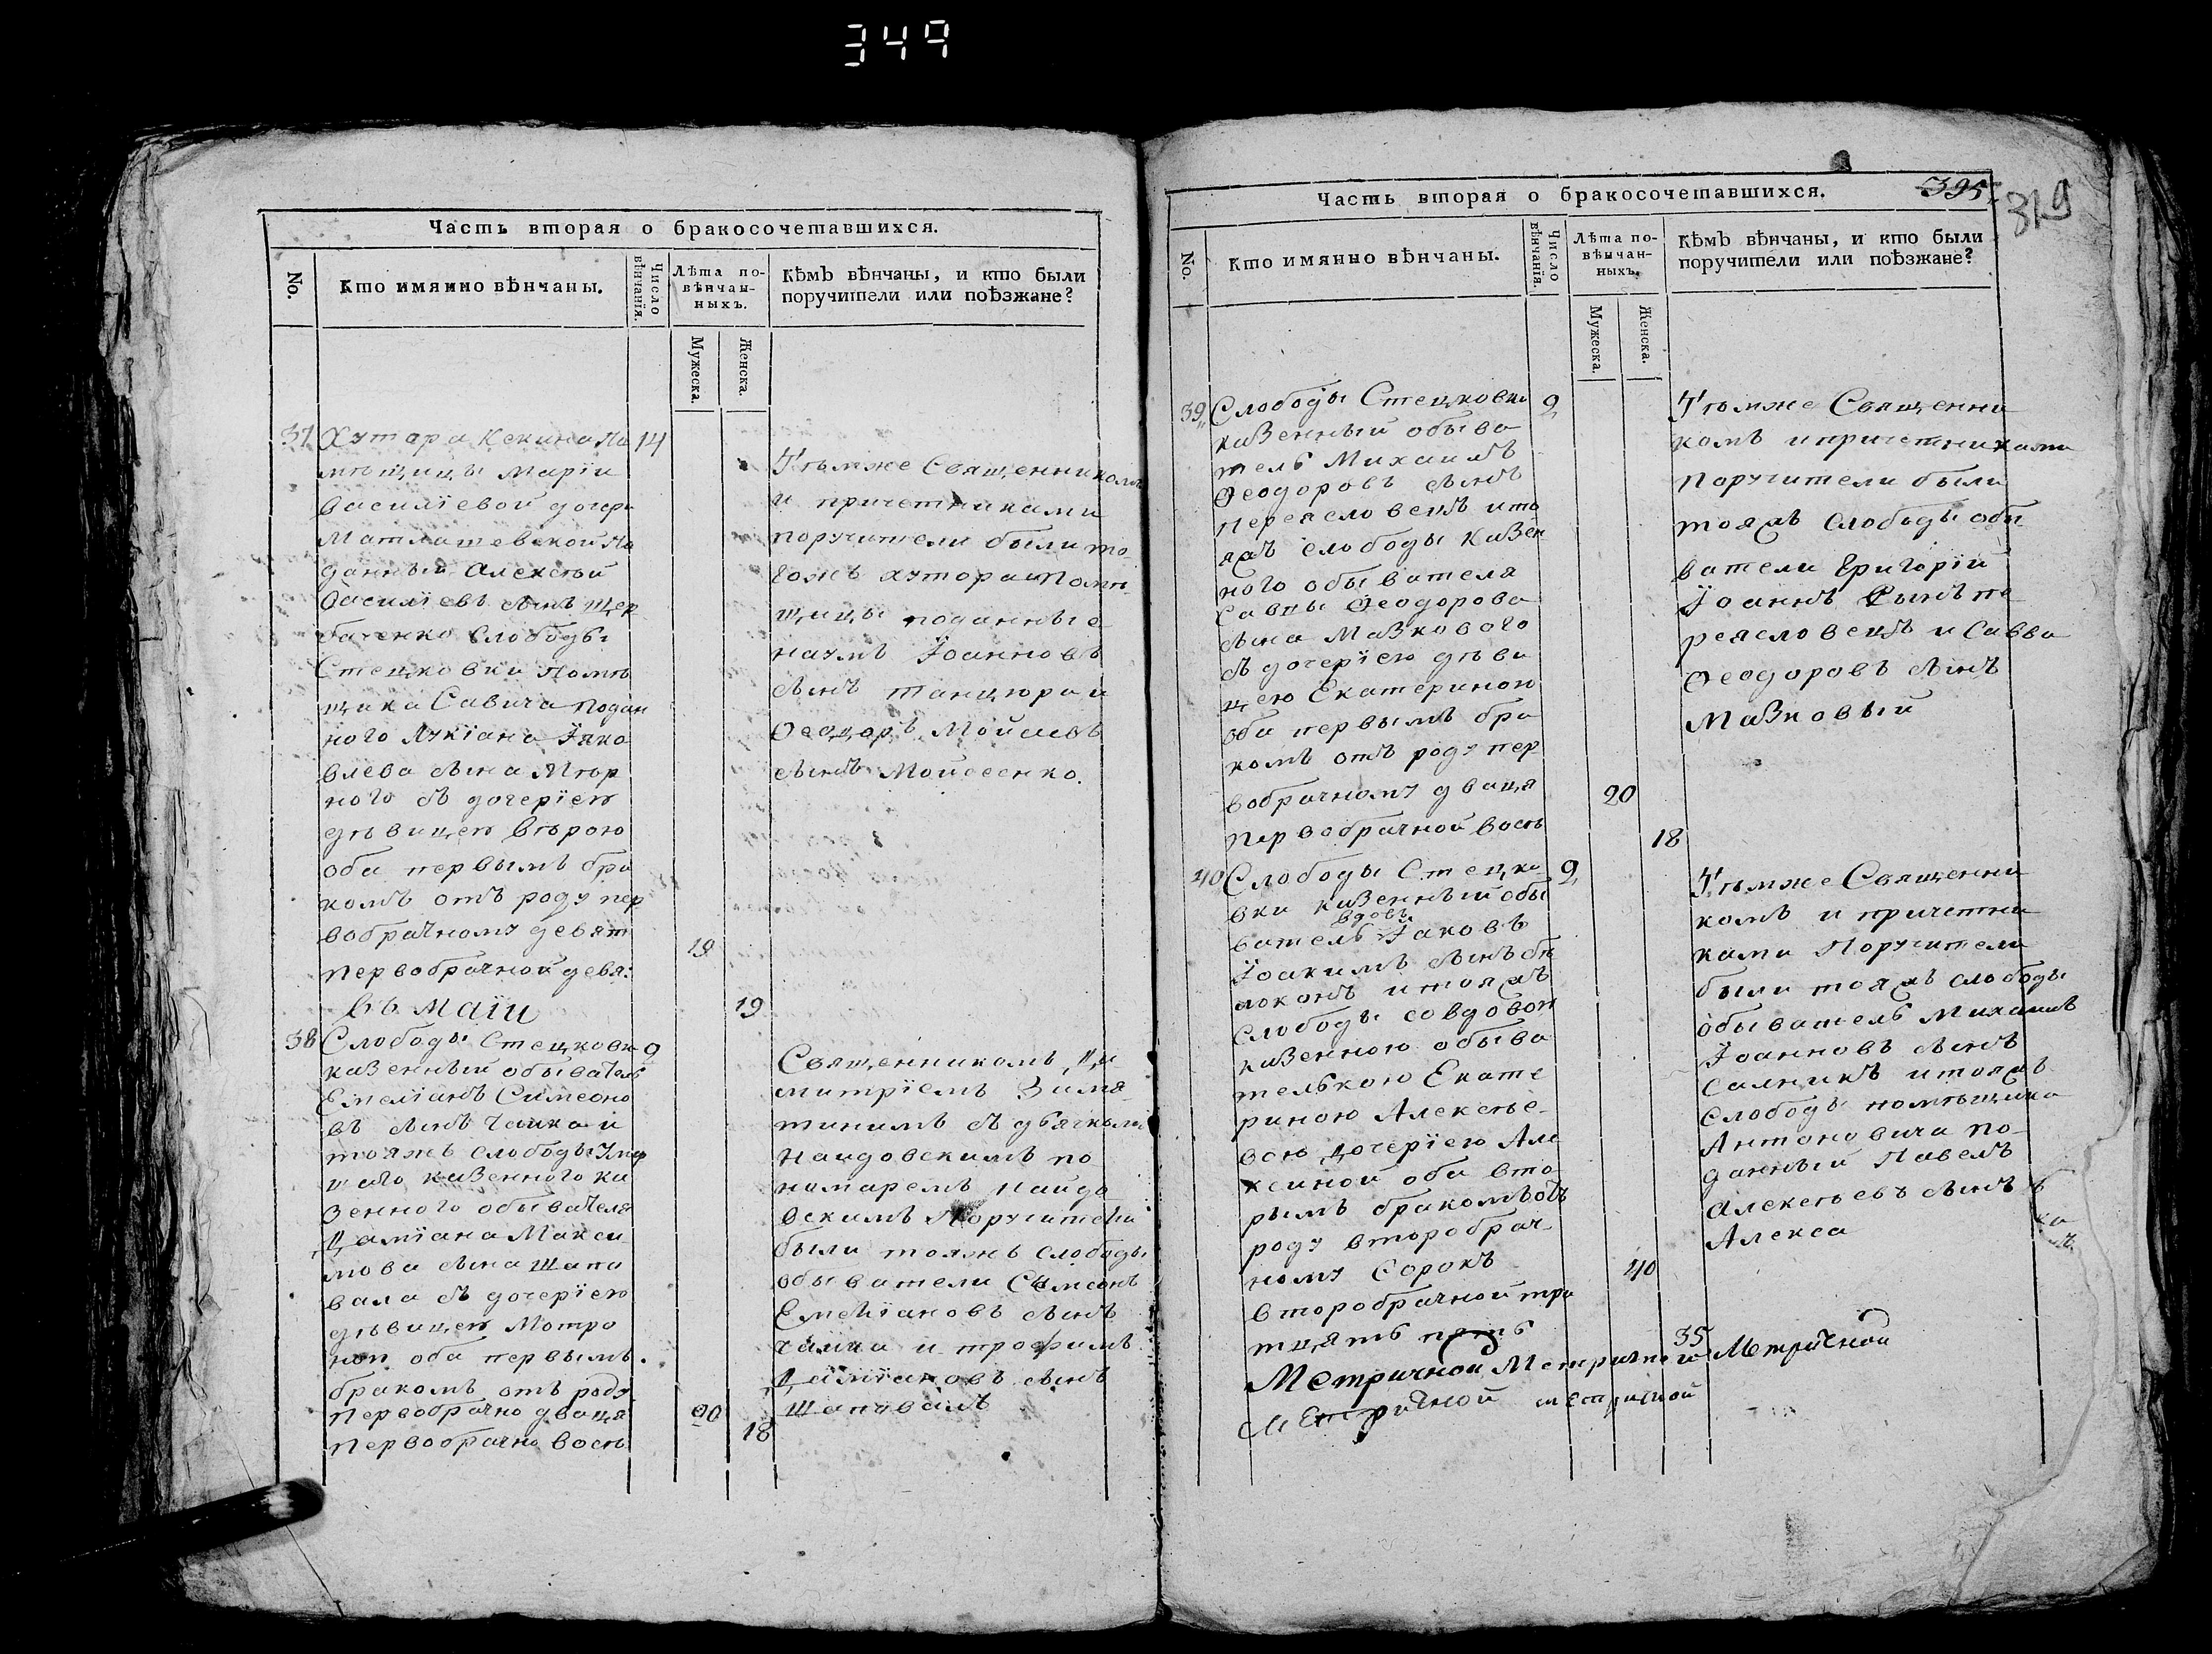 349
Часть вторая о бракосочетавшихся.
No.
Кто имянно вѣнчаны.
Число вѣнчанія.
Лѣта по-
вѣнчан-
ныхъ.
Кѣмъ вѣнчаны, и кто были
поручители или поѣзжане?
Мужеска.
Женска.
37 Хутора Кекина По 14
мѣщицы Маріи
Василіевой дочери
Матлашевской По
данный Алексѣй
Василіевъ сынъ Щер
баченко Слободы
Стецковки Помѣ
щика Савича подан
ного Лукіана Іако
влева сына
ного съ дочеріею
дѣвицею Вѣрою
оба первымъ бра
комъ отъ роду пер
вобрачному девят 19
первобрачной девя: 19
Тѣмже Священникомъ
и причетниками
поручители были то
гожъ хутора Помѣ
щицы поданные
наумъ Іоанновъ
сынъ танцюра и
Ѳеодоръ Мойсеевъ
сынъ Мойсеенко.
въ Маіи
38 Слободы Стецковки 9
казенный обыватель
Емеліанъ Симеоно
въ сынъ Чайка и
тояжъ слободы
казенного ка
зенного обывателя
Даміана Макси
мова сына Шапо
вала съ дочеріею
дѣвицею Мотро
ною оба первымъ
бракомъ отъ роду
первобрачно дватця 20
Первобрачно восѣ 18
Священникомъ Ди
митріемъ
съ дьячкомъ
по
номаремъ
Поручители
были тояжъ слободы
обыватели Симеонъ
Емеліановъ сынъ
чайка и трофимъ
Даміановъ сынъ
Шаповалъ
Часть вторая о бракосочетавшихся.
395
319
No.
Кто имянно вѣнчаны.
Число вѣнчанія.
Лѣта по-
вѣнчан-
ныхъ.
Кѣмъ вѣнчаны, и кто были
поручители или поѣзжане?
Мужеска.
Женска.
39 Слободы Стецковки 9
казенный обыва
тель Михаилъ
Ѳеодоровъ сынъ
Переясловецъ и то
яжъ слободы казен
ного обывателя
Саввы Ѳеодорова
сына Мазкового
съ дочеріею дѣви
цею Екатериною
оба первымъ бра
комъ отъ роду пер
вобрачному дватця 20
первобрачной восѣ 18
Тѣмже Священни
комъ и причетниками
Поручители были
тояжъ слободы обы
ватели Григорій
Іоаннъ сынъ пе
реясловецъ и Савва
Ѳеодоровъ сынъ
Мазковый
40 Слободы Стецко 9
вки казенный обы
вдовъ
ватель Іаковъ
Іоакимъ сынъ бѣ
локонь и тояжъ
слободы со вдовою
казенною обыва
телькою Екате
риною Алексѣе-
вою дочеріею Але
ксиной оба вто
рымъ бракомъ отъ
роду второбрач-
ному сорокъ 40
второбрачной три
тцять пять 35
Тѣмже Священни
комъ и причетни
ками Поручители
были тояжъ слободы
обыватель Михаилъ
Іоанновъ сынъ
Салникъ и тояжъ
Слободы помѣщика
Антоновича по-
данный Павелъ
Алексѣевъ сынъ
Алекса
Метричной Метричной Метричной
Метричной метричной